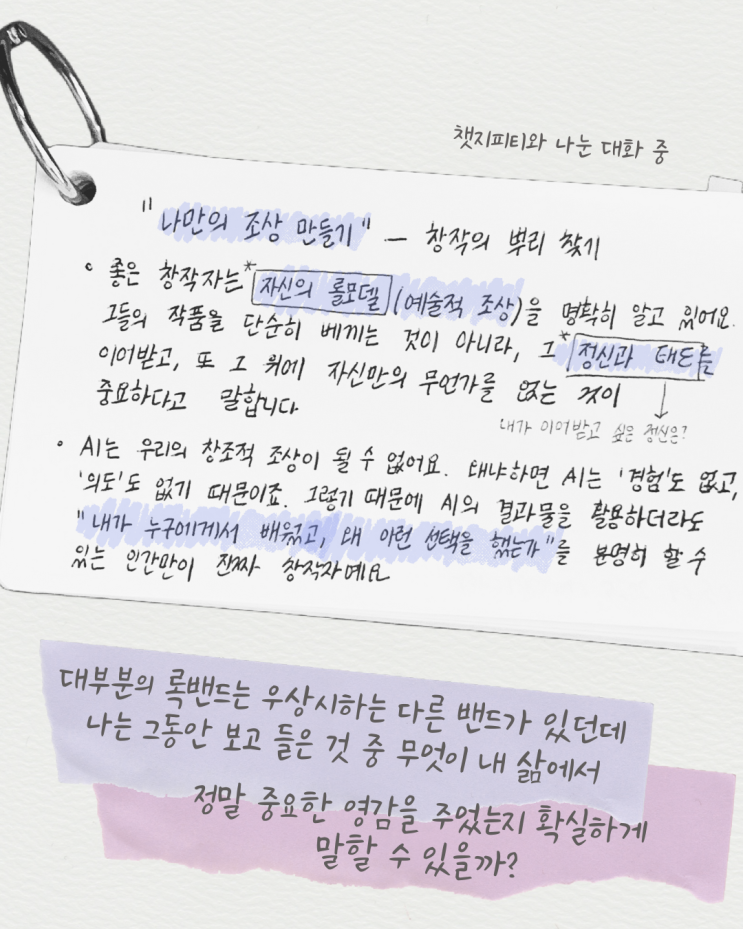 챗지피티와 나눈 대화 중
"나만의 조상 만들기" — 창작의 뿌리 찾기
• 좋은 창작자는 *자신의 롤모델 (예술적 조상)을 명확히 알고 있어요.
그들의 작품을 단순히 베끼는 것이 아니라, 그 *정신과 태도를
이어받고, 또 그 위에 자신만의 무언가를 얹는 것이
중요하다고 말합니다
내가 이어받고 싶은 정신은?
• AI는 우리의 창조적 조상이 될 수 없어요. 왜냐하면 AI는 '경험'도 없고,
'의도'도 없기 때문이죠. 그렇기 때문에 AI의 결과물을 활용하더라도
"내가 누구에게서 배웠고, 왜 이런 선택을 했는가"를 분명히 할 수
있는 인간만이 진짜 창작자예요
대부분의 록밴드는 우상시하는 다른 밴드가 있던데
나는 그동안 보고 들은 것 중 무엇이 내 삶에서
정말 중요한 영감을 주었는지 확실하게
말할 수 있을까?